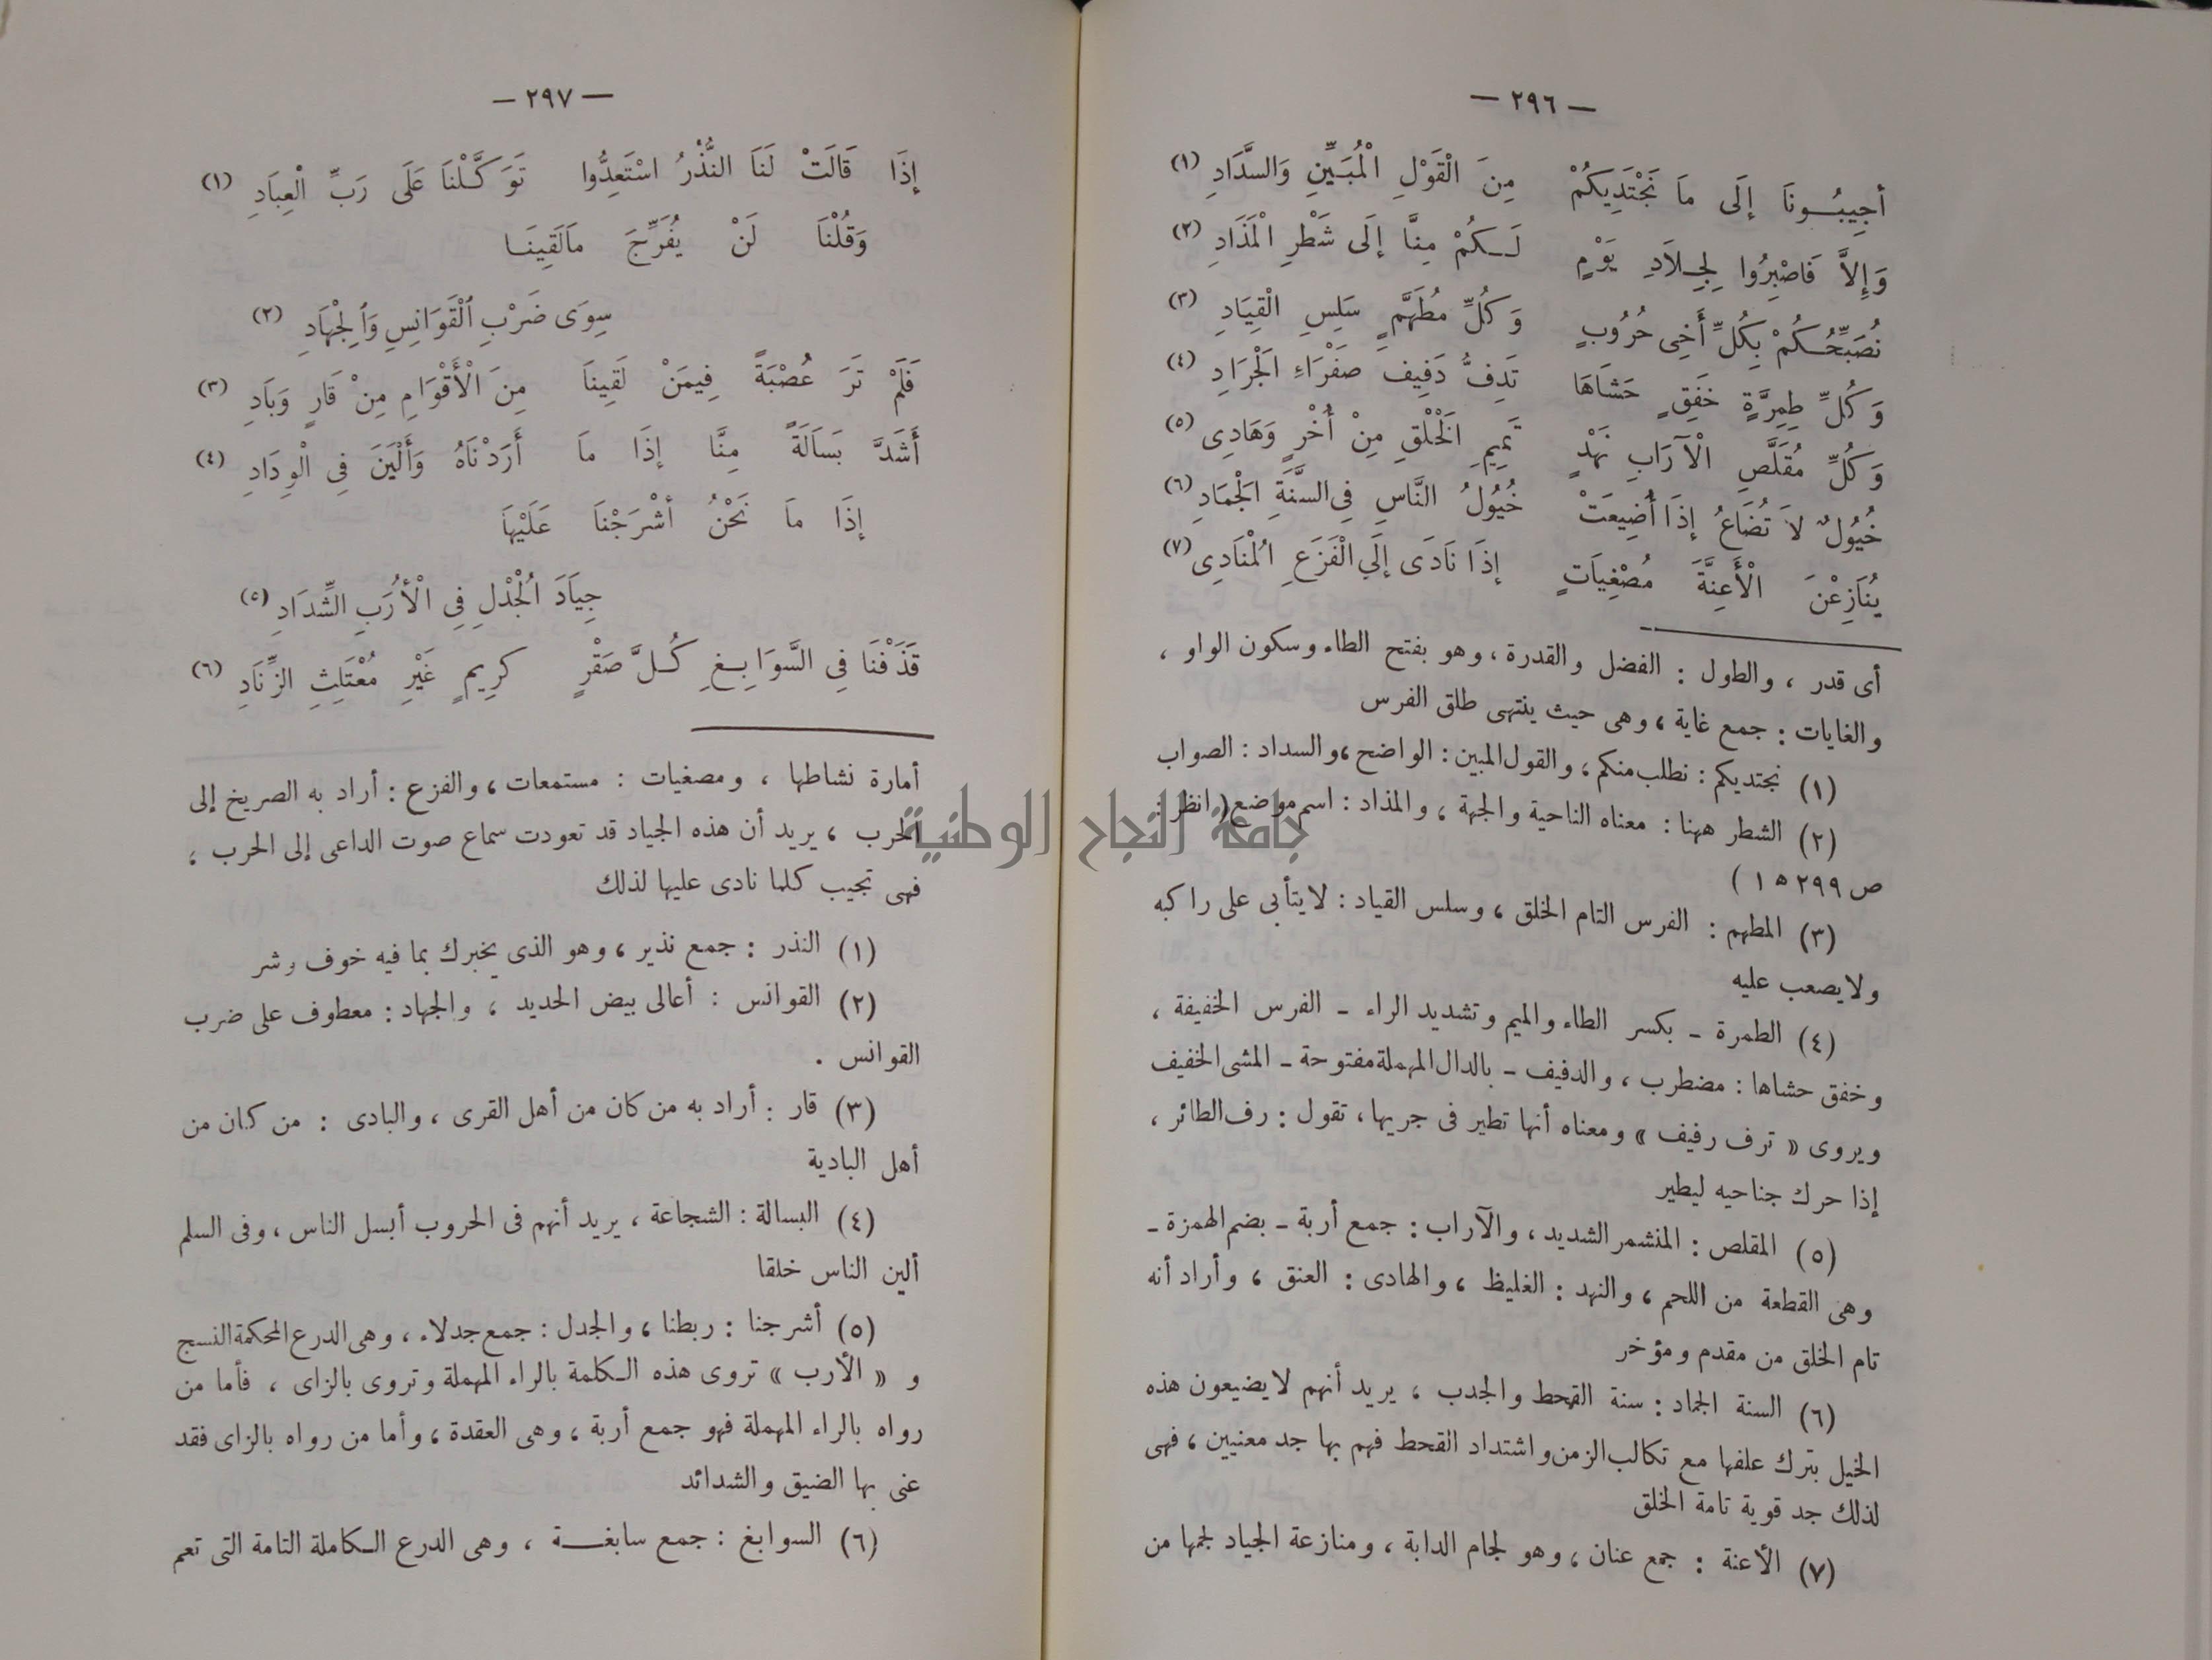 — ٢٩٦ —
أجِيبُـونَا إلَى مَا نَجْتَدِيكُمْ مِنَ الْقَوْلِ الْمُبَيِّنِ وَالسَّدَادِ (١)
وَإِلاَّ فَاصْبِرُوا لِجِـلاَدِ يَوْمٍ لَـكُمْ مِنَّا إلَى شَطْرِ الْمَذَادِ (٢)
نُصَبِّحُـكُمْ بِكُلِّ أَخِى حُرُوبٍ وَكُلِّ مُطَهَّمٍ سَلِسِ الْقِيَادِ (٣)
وَكُلِّ طِمِرَّةٍ خَفِقٍ حَشَاهَا تَدِفُّ دَفِيفَ صَفْرَاءِ الْجَرَادِ (٤)
وَكُلِّ مُقَلَّصِ الْآرَابِ نَهْدٍ تَمِيمِ الْخَلْقِ مِنْ أُخْرٍ وَهَادِى (٥)
خُيُولٌ لاَ تُضَاعُ إذَا أُضِيعَتْ خُيُولُ النَّاسِ فِى السَّنَةِ الْجَمَادِ (٦)
يُنَازِعْنَ الْأَعِنَّةَ مُصْغِيَاتٍ إذَا نَادَى إلَى الْفَزَعِ الْمُنَادِى (٧)
أى قدر ، والطول : الفضل والقدرة ، وهو بفتح الطاء وسكون الواو ،
والغايات : جمع غاية ، وهى حيث ينتهى طلق الفرس
(١) نجتديكم : نطلب منكم ، والقول المبين : الواضح ، والسداد : الصواب
(٢) الشطر ههنا : معناه الناحية والجهة ، والمذاد : اسم موضع ( انظر :
ص ٢٩٩ ه ١ )
(٣) المطهم : الفرس التام الخلق ، وسلس القياد : لا يتأبى على راكبه
ولا يصعب عليه
(٤) الطمرة – بكسر الطاء والميم وتشديد الراء – الفرس الخفيفة ،
وخفق حشاها : مضطرب ، والدفيف – بالدال المهملة مفتوحة – المشى الخفيف
ويروى « ترف رفيف » ومعناه أنها تطير فى جريها ، تقول : رف الطائر ،
إذا حرك جناحيه ليطير
(٥) المقلص : المنشمر الشديد ، والآراب : جمع أربة – بضم الهمزة –
وهى القطعة من اللحم ، والنهد : الغليظ ، والهادى : العنق ، وأراد أنه
تام الخلق من مقدم ومؤخر
(٦) السنة الجماد : سنة القحط والجدب ، يريد أنهم لا يضيعون هذه
الخيل بترك علفها مع تكالب الزمن واشتداد القحط فهم بها جد معنيين ، فهى
لذلك جد قوية تامة الخلق
(٧) الأعنة : جمع عنان ، وهو لجام الدابة ، ومنازعة الجياد لجمها من
— ٢٩٧ —
إذَا قَالَتْ لَنَا النُّذْرُ اسْتَعِدُّوا تَوَكَّلْنَا عَلَى رَبِّ الْعِبَادِ (١)
وَقُلْنَا لَنْ يُفَرِّجَ مَالَقِينَـا
سِوَى ضَرْبِ الْقَوَانِسِ وَالْجِهَادِ (٢)
فَلَمْ تَرَ عُصْبَةً فِيمَنْ لَقِينَا مِنَ الْأَقْوَامِ مِنْ قَارٍ وَبَادِ (٣)
أَشَدَّ بَسَالَةً مِنَّا إذَا مَا أَرَدْنَاهُ وَأَلْيَنَ فِى الْوِدَادِ (٤)
إذَا مَا نَحْنُ أشْرَجْنَا عَلَيْهَا
جِيَادَ الْجُدْلِ فِى الْأُرَبِ الشِّدَادِ (٥)
قَذَفْنَا فِى السَّوَابِـغِ كُـلَّ صَقْرٍ كَرِيمٍ غَيْرِ مُعْتَلِثِ الزِّنَادِ (٦)
أمارة نشاطها ، ومصغيات : مستمعات ، والفزع : أراد به الصريخ إلى
الحرب ، يريد أن هذه الجياد قد تعودت سماع صوت الداعى إلى الحرب ،
فهى تجيب كلما نادى عليها لذلك
(١) النذر : جمع نذير ، وهو الذى يخبرك بما فيه خوف وشر
(٢) القوانس : أعالى بيض الحديد ، والجهاد : معطوف على ضرب
القوانس .
(٣) قار : أراد به من كان من أهل القرى ، والبادى : من كان من
أهل البادية
(٤) البسالة : الشجاعة ، يريد أنهم فى الحروب أبسل الناس ، وفى السلم
ألين الناس خلقا
(٥) أشرجنا : ربطنا ، والجدل : جمع جدلاء ، وهى الدرع المحكمة النسج
و « الأرب » تروى هذه الكلمة بالراء المهملة وتروى بالزاى ، فأما من
رواه بالراء المهملة فهو جمع أربة ، وهى العقدة ، وأما من رواه بالزاى فقد
عنى بها الضيق والشدائد
(٦) السوابغ : جمع سابغـة ، وهى الدرع الكاملة التامة التى تعم
جامعة النجاح الوطنية